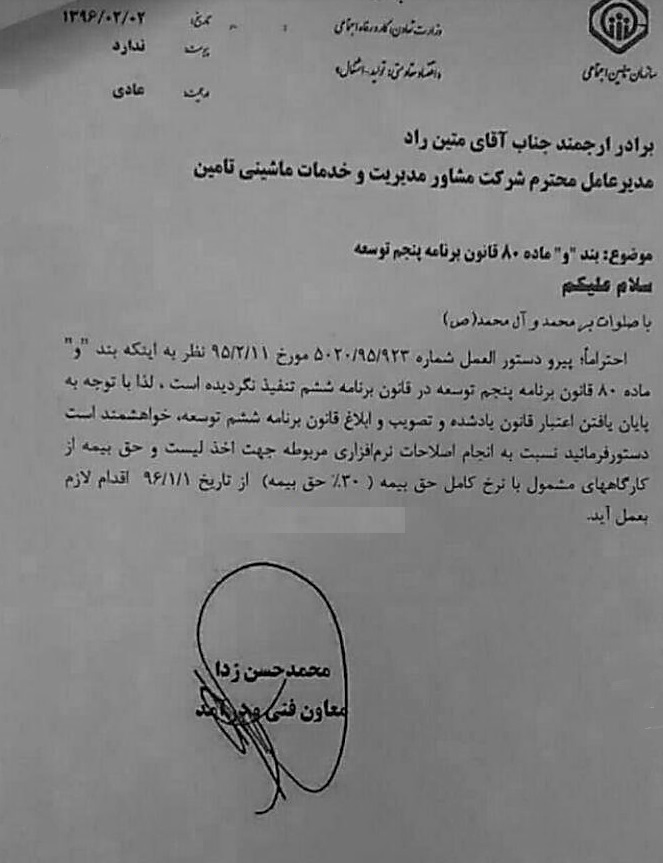 تاریخ: ۱۳۹۶/۰۲/۰۲
وزارت تعاون، کار و رفاه اجتماعی
پیوست: ندارد
سازمان تامین اجتماعی
«اقتصاد مقاومتی: تولید-اشتغال»
عادی
برادر ارجمند جناب آقای متین راد
مدیرعامل محترم شرکت مشاور مدیریت و خدمات ماشینی تامین
موضوع: بند "و" ماده ۸۰ قانون برنامه پنجم توسعه
سلام علیکم
با صلوات بر محمد و آل محمد(ص)
احتراماً؛ پیرو دستور العمل شماره ۵۰۲۰/۹۵/۹۲۳ مورخ ۹۵/۲/۱۱ نظر به اینکه بند "و"
ماده ۸۰ قانون برنامه پنجم توسعه در قانون برنامه ششم تنفیذ نگردیده است ، لذا با توجه به
پایان یافتن اعتبار قانون یادشده و تصویب و ابلاغ قانون برنامه ششم توسعه، خواهشمند است
دستورفرمائید نسبت به انجام اصلاحات نرم‌افزاری مربوطه جهت اخذ لیست و حق بیمه از
کارگاههای مشمول با نرخ کامل حق بیمه ( ۳۰٪ حق بیمه) از تاریخ ۹۶/۱/۱ اقدام لازم
بعمل آید.
محمدحسن زدا
معاون فنی و درآمد